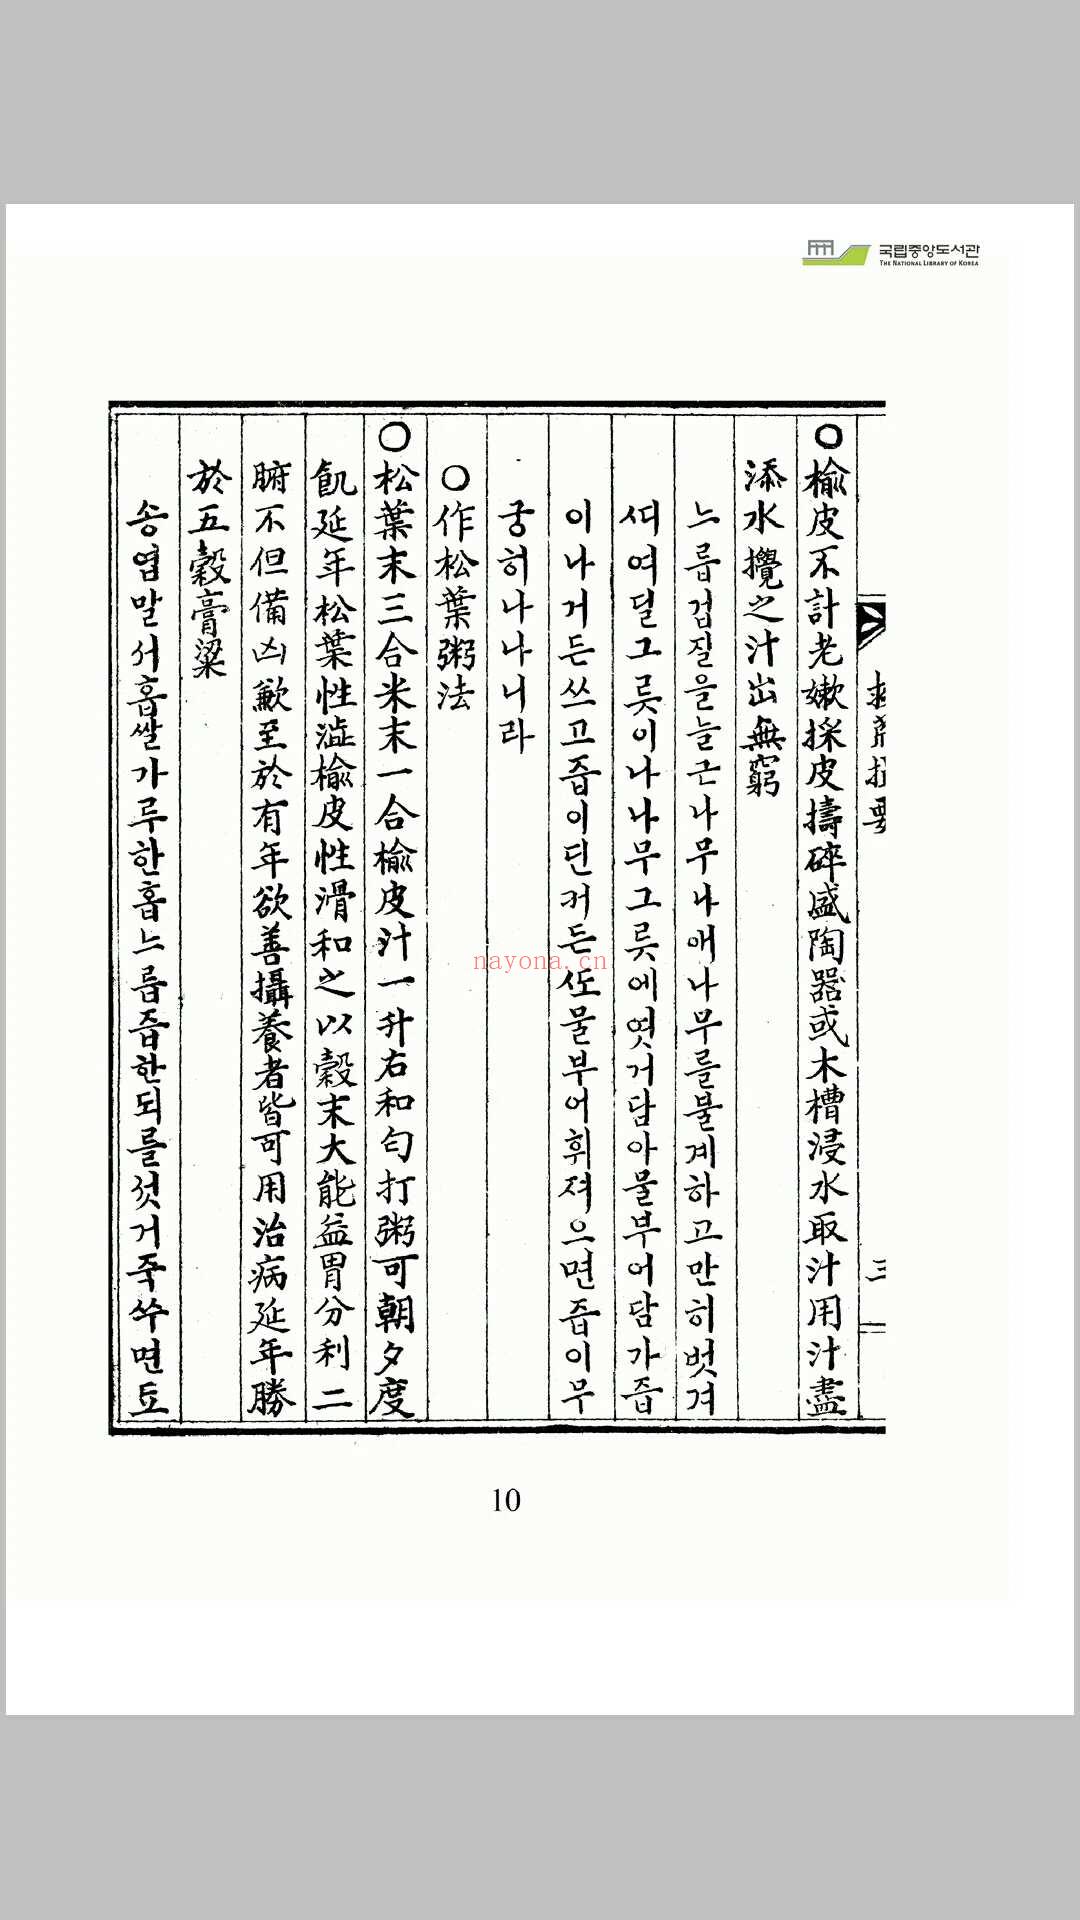 국립중앙도서관
THE NATIONAL LIBRARY OF KOREA
○榆皮不計老嫩採皮擣碎盛陶器或木槽浸水取汁用汁盡
添水攪之汁出無窮
느릅겁질을늘근나무나애나무를불계하고만히벗겨
ᄯᅵ여딜그릇이나나무그릇에엿거담아물부어담가즙
이나거든쓰고즙이딘커든ᄯᅩ물부어휘져으면즙이무
궁허나나니라
○作松葉粥法
○松葉末三合米末一合榆皮汁一升右和勻打粥可朝夕度
飢延年松葉性澁榆皮性滑和之以穀末大能益胃分利二
腑不但備凶歉至於有年欲善攝養者皆可用治病延年勝
於五穀膏粱
송엽말서홉쌀가루한홉느릅즙한되를섯거죽쑤면됴
三
nayona.cn
10